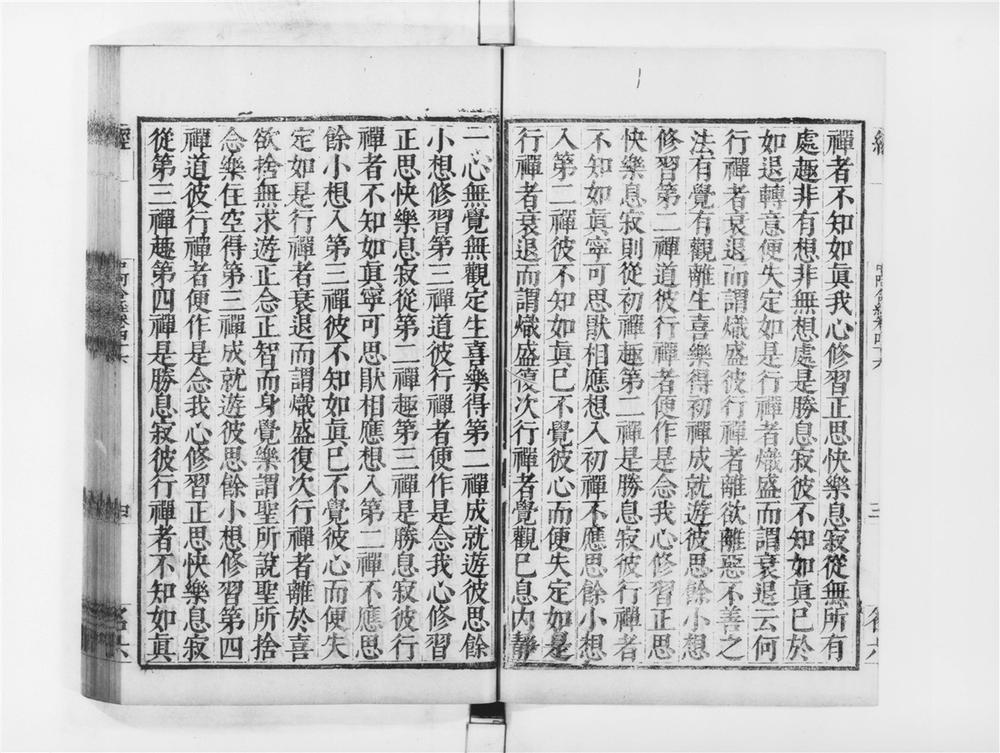 禪者不知如眞我心修習正思快樂息寂從無所有
處趣非有想非無想處是勝息寂彼不知如眞已於
如退轉意便失定如是行禪者熾盛而謂衰退云何
行禪者衰退而謂熾盛彼行禪者離欲離惡不善之
法有覺有觀離生喜樂得初禪成就遊彼思餘小想
修習第二禪道彼行禪者便作是念我心修習正思
快樂息寂則從初禪趣第二禪是勝息寂彼行禪者
不知如眞寧可思猒相應想入初禪不應思餘小想
入第二禪彼不知如眞已不覺彼心而便失定如是
行禪者衰退而謂熾盛復次行禪者覺觀已息內靜
一心無覺無觀定生喜樂得第二禪成就遊彼思餘
小想修習第三禪道彼行禪者便作是念我心修習
正思快樂息寂從第二禪趣第三禪是勝息寂彼行
禪者不知如眞寧可思猒相應想入第二禪不應思
餘小想入第三禪彼不知如眞已不覺彼心而便失
定如是行禪者衰退而謂熾盛復次行禪者離於喜
欲捨無求遊正念正智而身覺樂謂聖所說聖所捨
念樂住空得第三禪成就遊彼思餘小想修習第四
禪道彼行禪者便作是念我心修習正思快樂息寂
從第三禪趣第四禪是勝息寂彼行禪者不知如眞